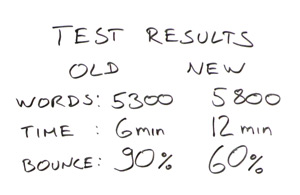 TEST RESULTS
OLD NEW
WORDS: 5300 5800
TIME : 6min 12 min
BOUNCE: 90% 60%